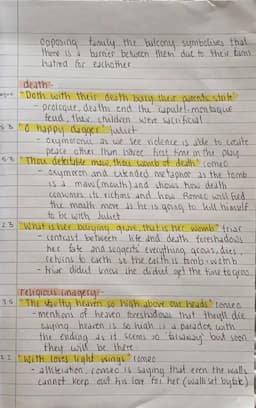 opposing family the balcony symbolises that
there is a barrier between them due to their fams
hatred for eachother
death:-
"Doth with their death bury their parents strife"
- prologue, death end the capulet-montague
feud, their children were sacrificial
"O happy dagger" juliet
- oxymoronic as we see violence is able to create
peace other than bance first time in the play
"Thou detestable maw, thou womb of death" romeo
- oxymoron and extended metaphor as the tomb
is a maw (mouth) and shows how death
consumes its victims and how Romeo will feed
the mouth more as he is going to kill himself
to be with Juliet
2.3 "What is her burying grave, that is her womb" friar
- contrast between life and death foreshadows
her fate and suggests everything grows, dies,
returns to earth so the earth is tomb + womb
- friar didnt know she didnt get the time to grow
religious imagery:-
"The vaulty heaven so high above our heads" romeo
- mentions of heaven foreshadows that they'll die
saying heaven is so high is a paradox with
the ending as it seems so faraway but soon
they will be there
"With loves light wings" romeo
- alliteration, romeo is saying that even the walls
cannot keep out his love for her (wall set by fate)